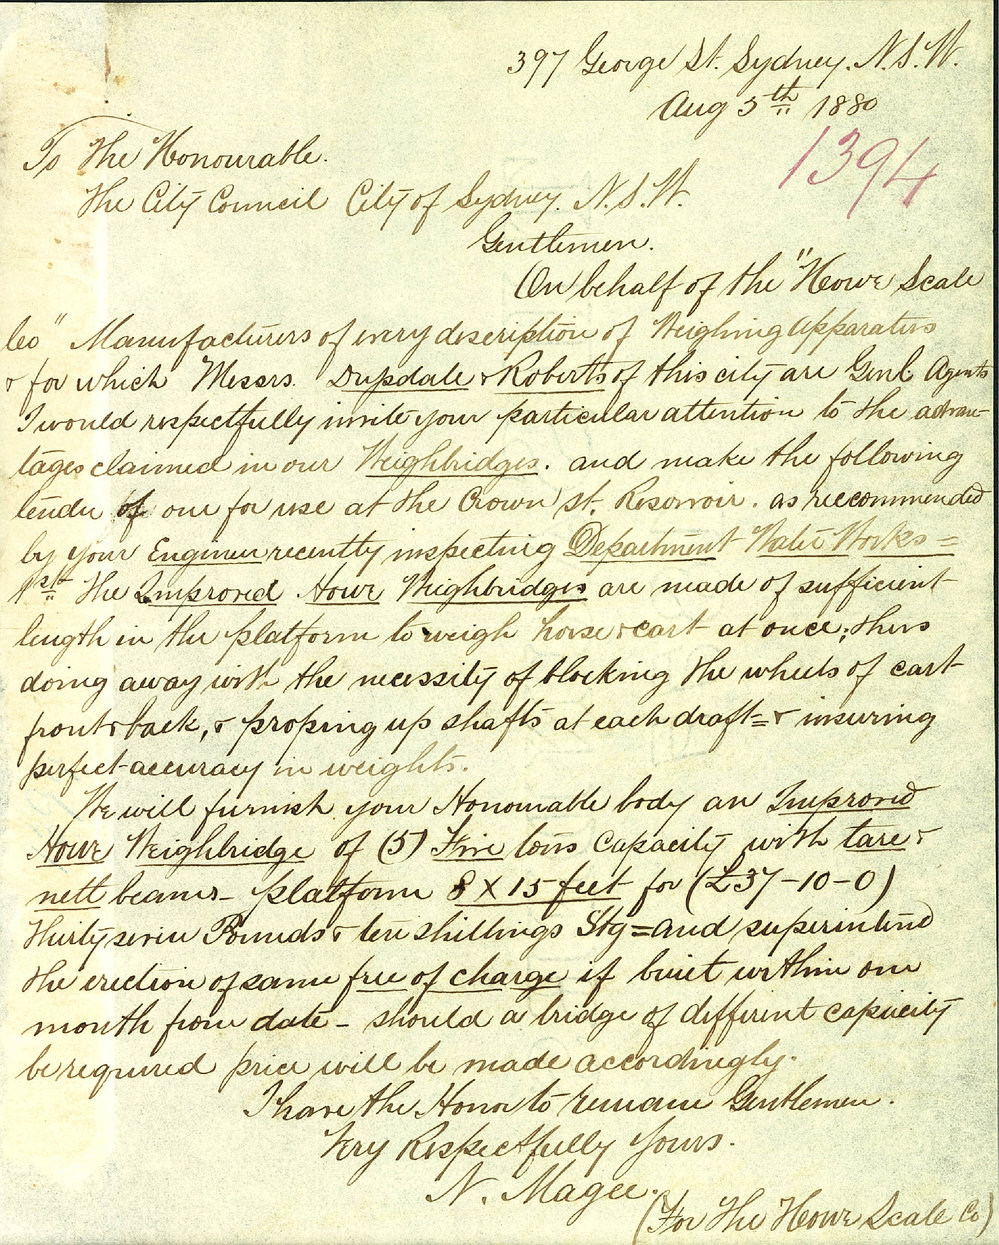 397 George St. Sydney. N.S.W.
Aug 5th 1880
1394
To The Honourable.
The City Council City of Sydney. N.S.W.
Gentlemen.
On behalf of the "Howe Scale
Co" Manufacturers of every description of Weighing Apparatus
& for which Messrs. & Roberts of this city are Genl Agents
I would respectfully invite your particular attention to the advan-
tages claimed in our Weighbridges. and make the following
tender of one for use at the Crown St. Resorvoir. as reccommended
by your Engineer recently inspecting Department Water Works =
1st The Improved Howe Weighbridges are made of sufficient
length in the platform to weigh horse & cart at once; thus
doing away with the necessity of blocking the wheels of cart
front & back, & proping up shafts at each draft = & insuring
perfect accuracy in weights.
We will furnish your Honourable body an Improved
Howe Weighbridge of (5) Five tons Capacity with tare &
nett beams - platform 8 X 15 feet for (£37-10-0)
Thirty seven Pounds & ten shillings Stg = and superintend
the erection of same free of charge if built within one
month from date - should a bridge of different capacity
be required price will be made accordingly.
I have the Honor to remain Gentlemen.
Very Respectfully Yours.
N. Magee.
(For The Howe Scale Co)